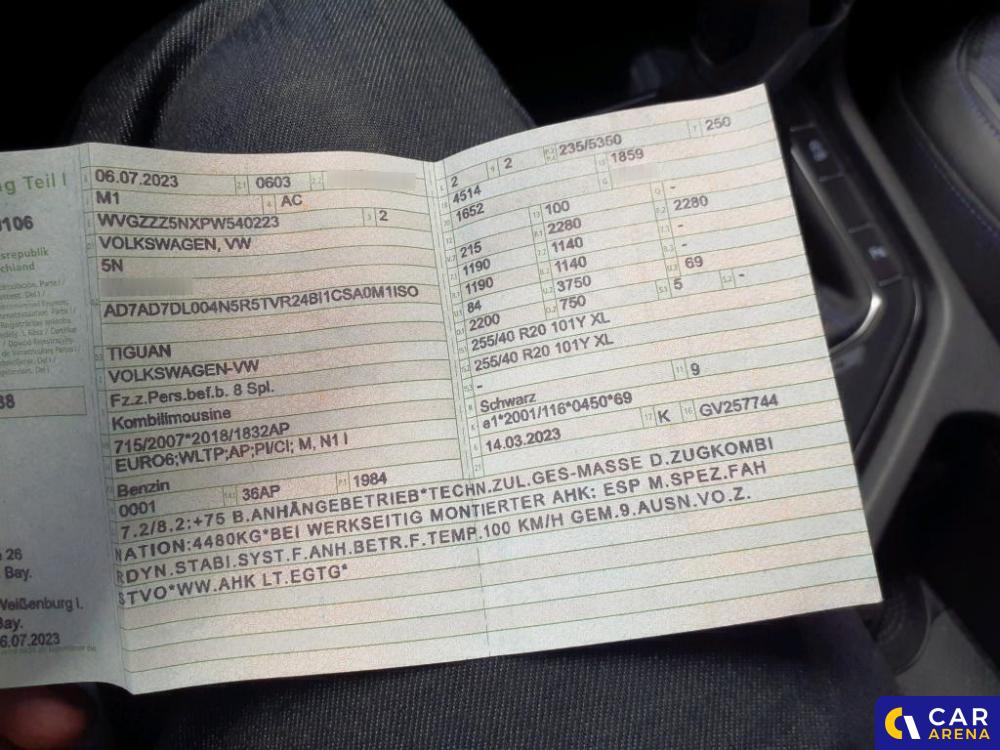 ng Teil I
0106
srepublik
chland
38
26
Bay.
Weißenburg I.
Bay.
6.07.2023
06.07.2023 2.1 0603 2.2
M1 4 AC
WVGZZZ5NXPW540223 3 2
VOLKSWAGEN, VW
5N
AD7AD7DL004N5R5TVR24BI1CSA0M1ISO
TIGUAN
VOLKSWAGEN-VW
Fz.z.Pers.bef.b. 8 Spl.
Kombilimousine
715/2007*2018/1832AP
EURO6;WLTP;AP;PI/CI; M, N1 I
Benzin
0001 36AP P.1 1984
2 9 2 235/5350 T 250
4514 1859
1652 G
13 100 Q -
215 2280 2280
1190 1140 -
1190 1140 -
84 3750 69
2200 750 S.1 5 S.2 -
255/40 R20 101Y XL
255/40 R20 101Y XL
-
Schwarz 11 9
e1*2001/116*0450*69
14.03.2023 17 K 16 GV257744
7.2/8.2:+75 B.ANHÄNGEBETRIEB*TECHN.ZUL.GES-MASSE D.ZUGKOMBI
NATION:4480KG*BEI WERKSEITIG MONTIERTER AHK: ESP M.SPEZ.FAH
RDYN.STABI.SYST.F.ANH.BETR.F.TEMP.100 KM/H GEM.9.AUSN.VO.Z.
STVO*WW.AHK LT.EGTG*
CAR
ARENA